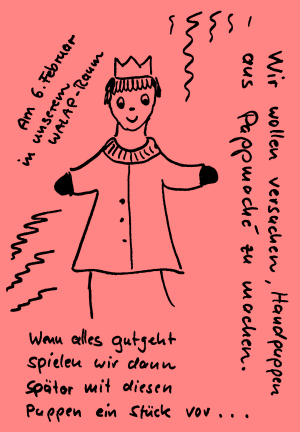 Am 6. Februar
in unserem
WALAP-Raum
Wir wollen versuchen, Handpuppen
aus Pappmaché zu machen.
Wenn alles gutgeht
spielen wir dann
später mit diesen
Puppen ein Stück vor...